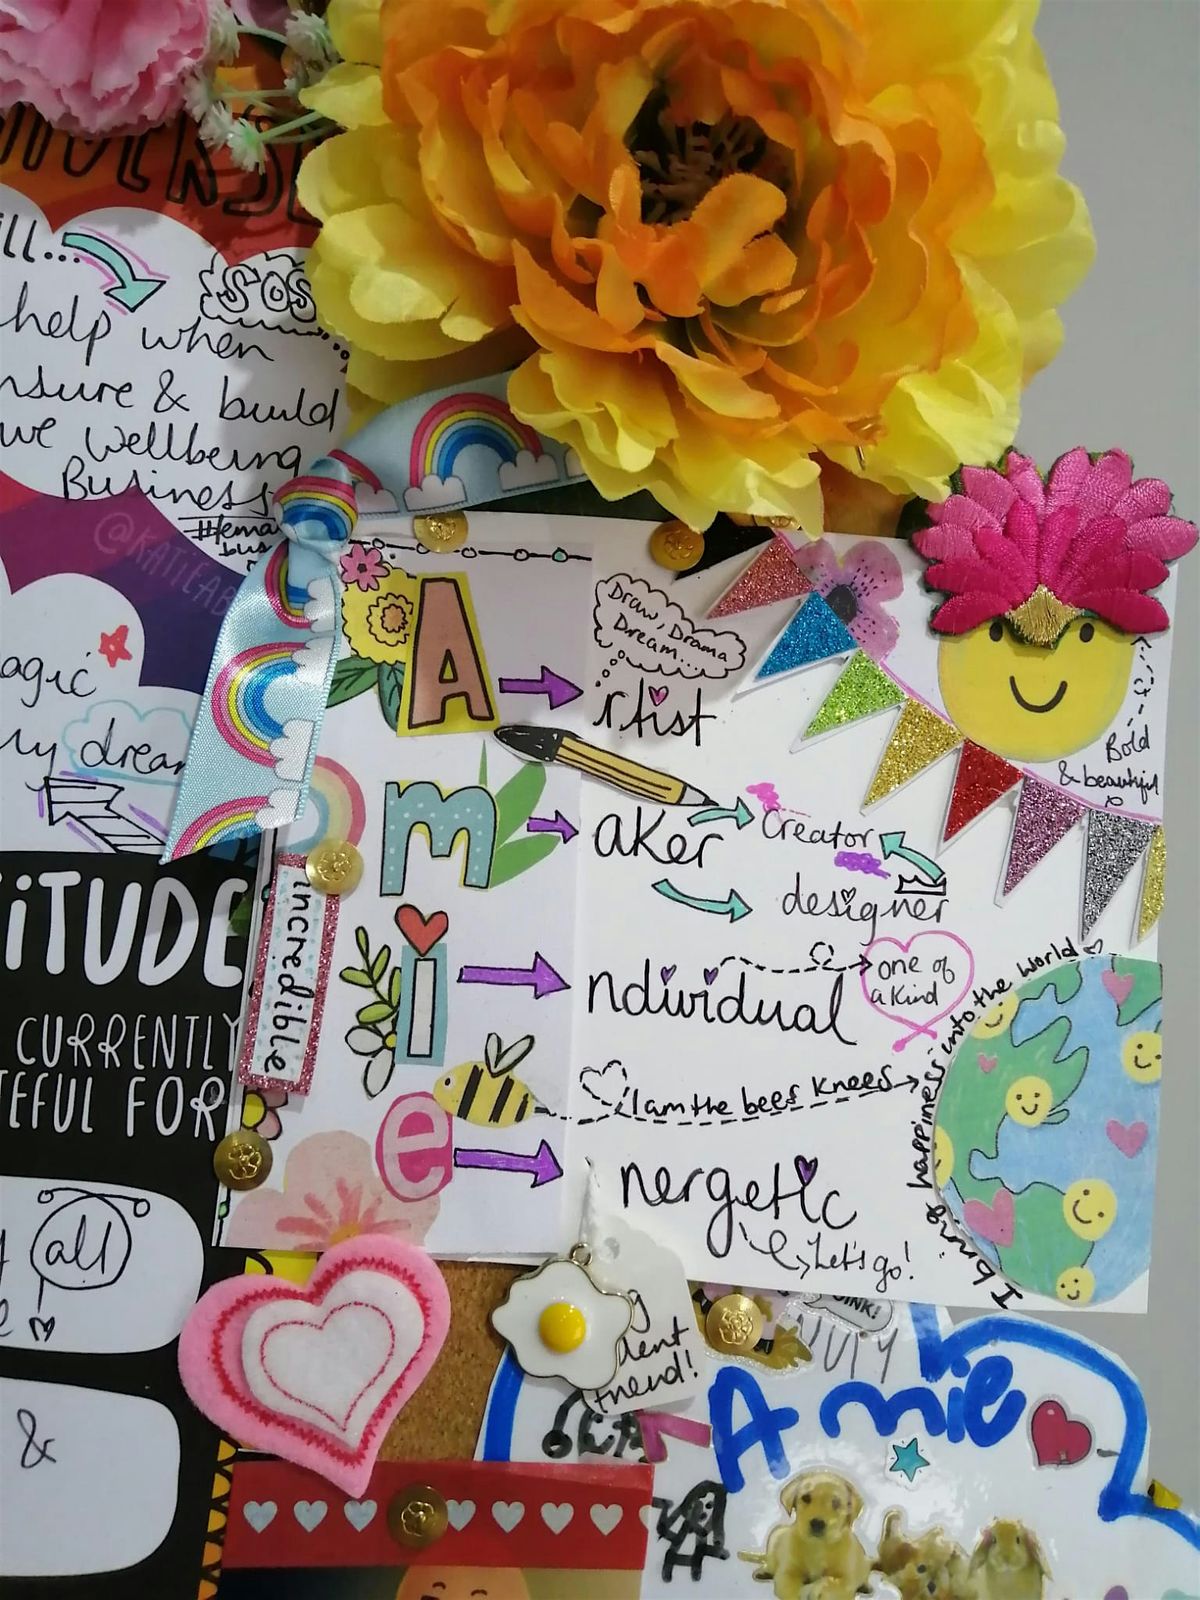 SOS
help when
& build
Wellbeing
Business
@KATIEAB
dream
ITUDE
CURRENTLY
FUL FOR
all
&
incredible
A
Draw, Drama
Dream...
rtist
m
aker
Creator
designer
i
ndividual
one of
a Kind
I am the bees knees
e
nergetic
Let's go!
Bold
& beautiful
I bring happiness into the world
friend!
OINK!
Amie